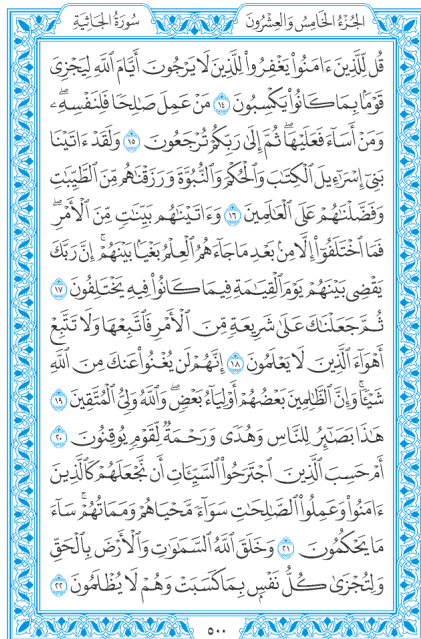 الجُزْءُ الخَامِسُ وَالعِشْرُونَ سُورَةُ الجَاثِيَةِ
قُل لِّلَّذِينَ ءَامَنُوا۟ يَغْفِرُوا۟ لِلَّذِينَ لَا يَرْجُونَ أَيَّامَ ٱللَّهِ لِيَجْزِىَ
قَوْمًۢا بِمَا كَانُوا۟ يَكْسِبُونَ ١٤ مَنْ عَمِلَ صَـٰلِحًا فَلِنَفْسِهِۦ ۖ
وَمَنْ أَسَآءَ فَعَلَيْهَا ۖ ثُمَّ إِلَىٰ رَبِّكُمْ تُرْجَعُونَ ١٥ وَلَقَدْ ءَاتَيْنَا
بَنِىٓ إِسْرَٰٓءِيلَ ٱلْكِتَـٰبَ وَٱلْحُكْمَ وَٱلنُّبُوَّةَ وَرَزَقْنَـٰهُم مِّنَ ٱلطَّيِّبَـٰتِ
وَفَضَّلْنَـٰهُمْ عَلَى ٱلْعَـٰلَمِينَ ١٦ وَءَاتَيْنَـٰهُم بَيِّنَـٰتٍ مِّنَ ٱلْأَمْرِ ۖ
فَمَا ٱخْتَلَفُوٓا۟ إِلَّا مِنۢ بَعْدِ مَا جَآءَهُمُ ٱلْعِلْمُ بَغْيًۢا بَيْنَهُمْ ۚ إِنَّ رَبَّكَ
يَقْضِى بَيْنَهُمْ يَوْمَ ٱلْقِيَـٰمَةِ فِيمَا كَانُوا۟ فِيهِ يَخْتَلِفُونَ ١٧
ثُمَّ جَعَلْنَـٰكَ عَلَىٰ شَرِيعَةٍ مِّنَ ٱلْأَمْرِ فَٱتَّبِعْهَا وَلَا تَتَّبِعْ
أَهْوَآءَ ٱلَّذِينَ لَا يَعْلَمُونَ ١٨ إِنَّهُمْ لَن يُغْنُوا۟ عَنكَ مِنَ ٱللَّهِ
شَيْـًٔا ۚ وَإِنَّ ٱلظَّـٰلِمِينَ بَعْضُهُمْ أَوْلِيَآءُ بَعْضٍ ۖ وَٱللَّهُ وَلِىُّ ٱلْمُتَّقِينَ ١٩
هَـٰذَا بَصَـٰٓئِرُ لِلنَّاسِ وَهُدًى وَرَحْمَةٌ لِّقَوْمٍ يُوقِنُونَ ٢٠
أَمْ حَسِبَ ٱلَّذِينَ ٱجْتَرَحُوا۟ ٱلسَّيِّـَٔاتِ أَن نَّجْعَلَهُمْ كَٱلَّذِينَ
ءَامَنُوا۟ وَعَمِلُوا۟ ٱلصَّـٰلِحَـٰتِ سَوَآءً مَّحْيَاهُمْ وَمَمَاتُهُمْ ۚ سَآءَ
مَا يَحْكُمُونَ ٢١ وَخَلَقَ ٱللَّهُ ٱلسَّمَـٰوَٰتِ وَٱلْأَرْضَ بِٱلْحَقِّ
وَلِتُجْزَىٰ كُلُّ نَفْسٍۭ بِمَا كَسَبَتْ وَهُمْ لَا يُظْلَمُونَ ٢٢
٥٠٠